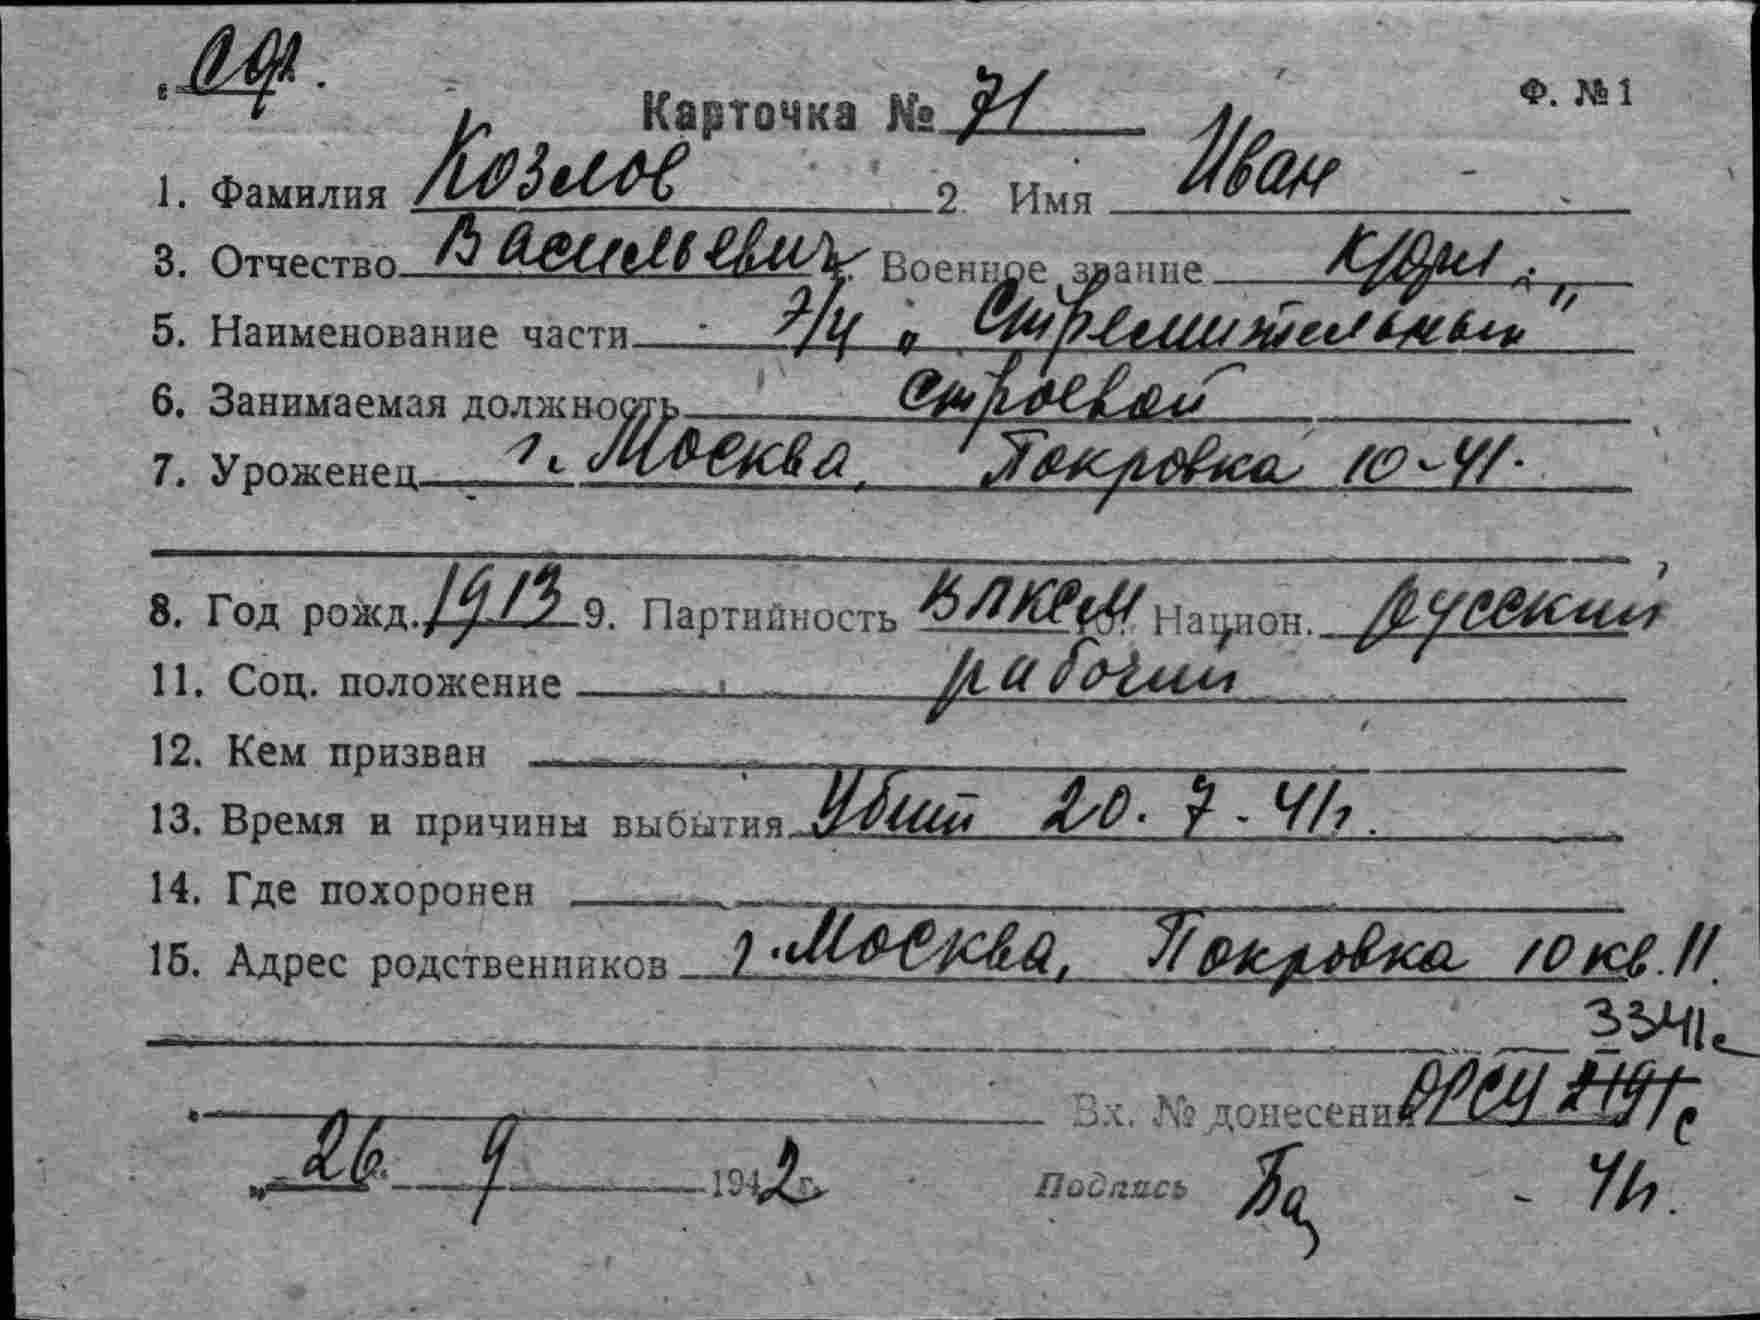 Ф. № 1
Карточка № 71
1. Фамилия Козлов 2 Имя Иван
3. Отчество Васильевич Военное звание к/фл.
5. Наименование части э/м „Стремительный"
6. Занимаемая должность строевой
7. Уроженец г. Москва, Покровка 10-41.
8. Год рожд. 1913 9. Партийность ВЛКСМ 10. Национ. русский
11. Соц. положение рабочий
12. Кем призван
13. Время и причины выбытия Убит 20.7-41г.
14. Где похоронен
15. Адрес родственников г. Москва, Покровка 10 кв. 11.
3341с
Вх. № донесения ОРСУ 2191с
„26" 9 1942 г. Подпись Ба - 41г.